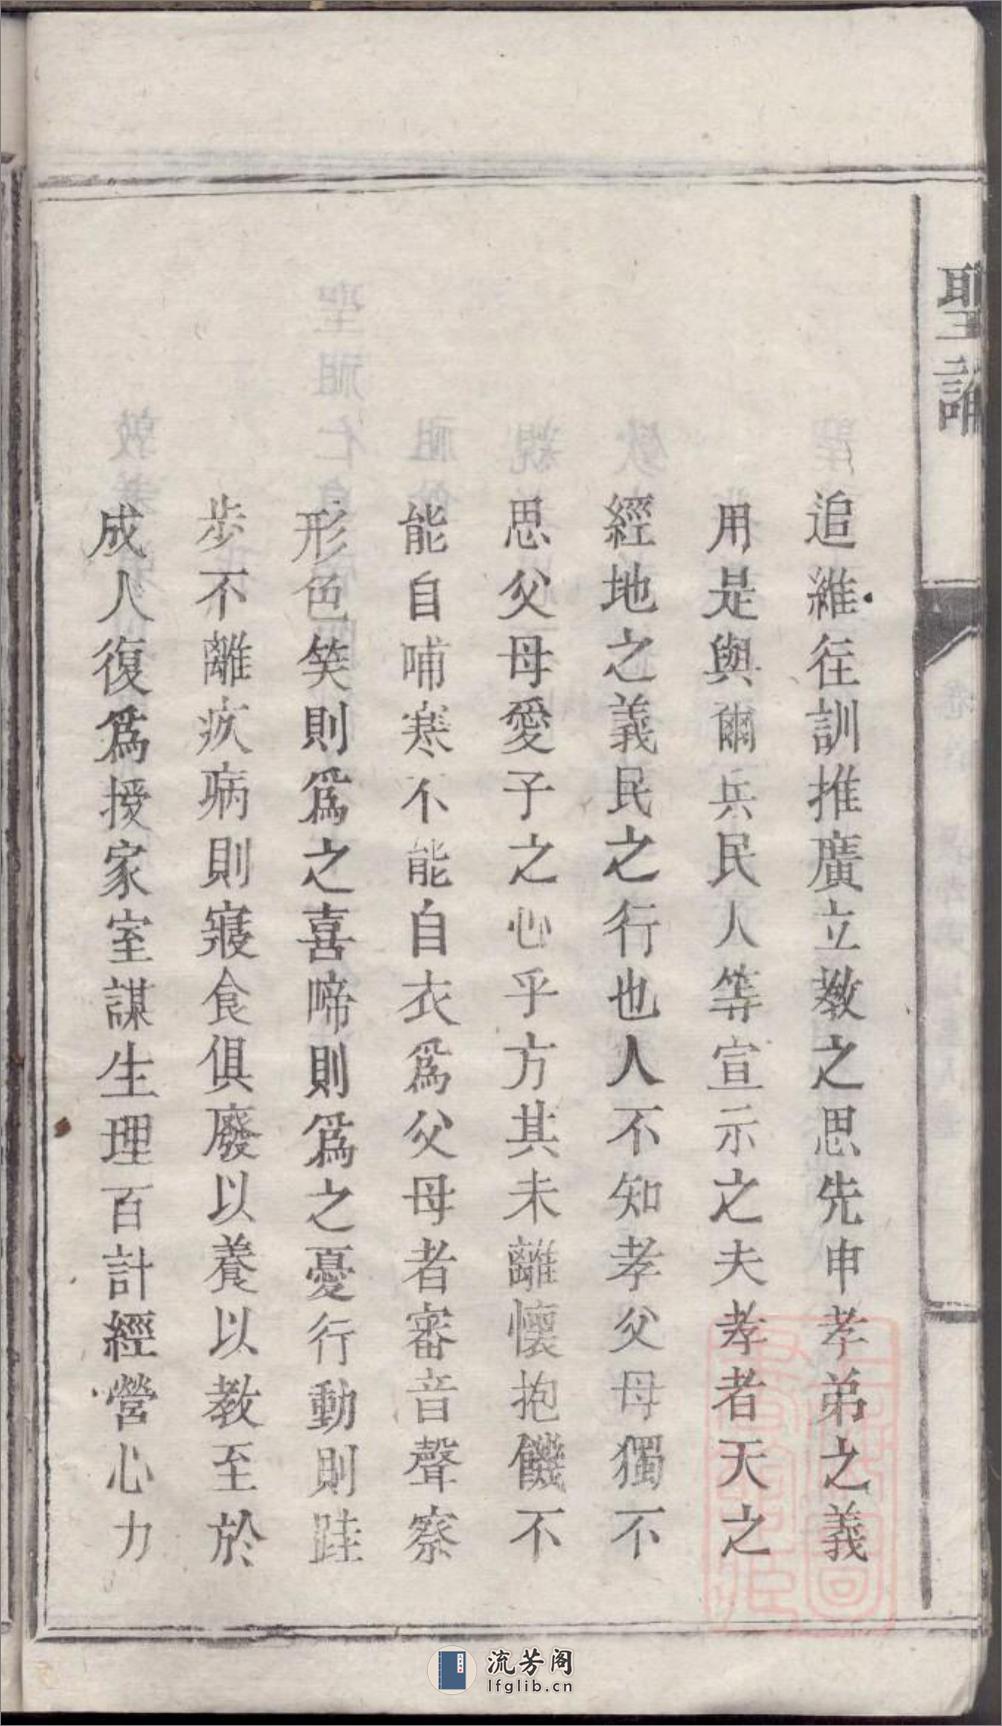 聖諭
追維往訓推廣立教之思先申孝弟之義
用是與爾兵民人等宣示之夫孝者天之
經地之義民之行也人不知孝父母獨不
思父母愛子之心乎方其未離懷抱饑不
能自哺寒不能自衣爲父母者審音聲察
形色笑則爲之喜啼則爲之憂行動則跬
步不離疾病則寢食俱廢以養以教至於
成人復爲授家室謀生理百計經營心力
流芳阁
lfglib.cn